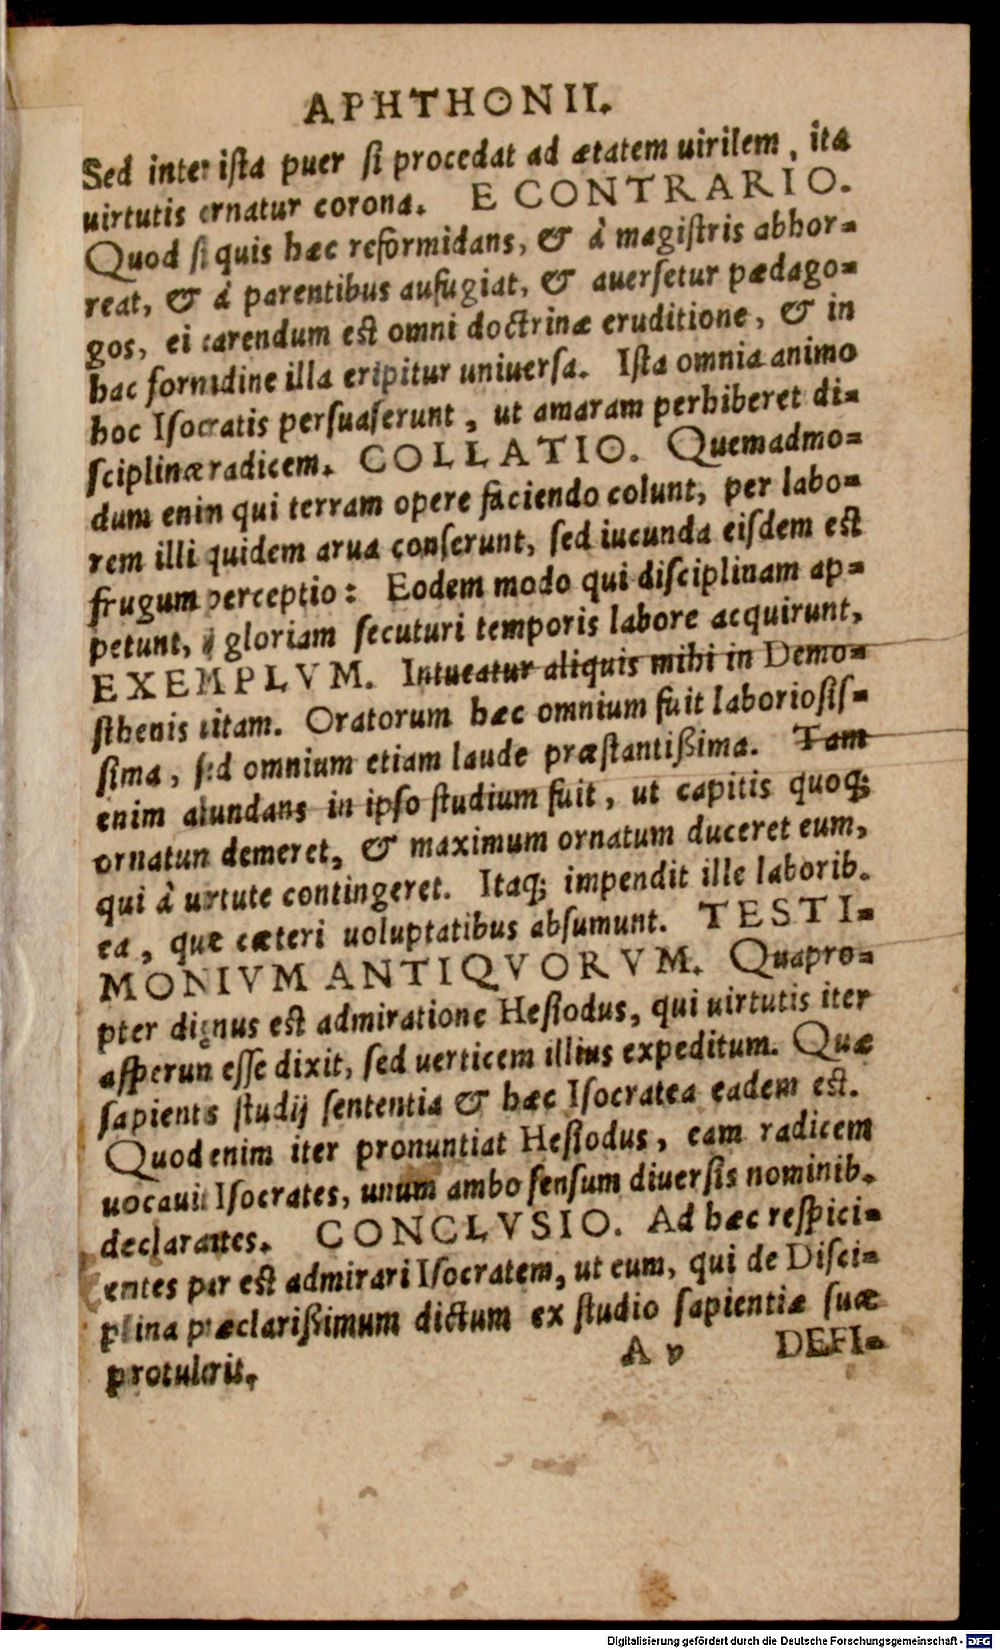 APHTHONII.
Sed inter iſta puer ſi procedat ad ætatem uirilem, ita
uirtutis ornatur corona. E CONTRARIO.
Quod ſi quis hæc reformidans, & à magiſtris abhor-
reat, & à parentibus aufugiat, & auerſetur pædago-
gos, ei carendum eſt omni doctrinæ eruditione, & in
hac formidine illa eripitur uniuerſa. Iſta omnia animo
hoc Iſocratis perſuaſerunt, ut amaram perhiberet di-
ſciplinæ radicem. COLLATIO. Quemadmo-
dum enin qui terram opere faciendo colunt, per labo-
rem illi quidem arua conſerunt, ſed iucunda eiſdem eſt
frugum perceptio: Eodem modo qui diſciplinam ap-
petunt, gloriam ſecuturi temporis labore acquirunt,
EXEMPLVM. Intueatur aliquis mihi in Demo-
ſthenis uitam. Oratorum hæc omnium fuit laborioſiſ-
ſima, ſed omnium etiam laude præſtantißima. Tam
enim abundans in ipſo ſtudium fuit, ut capitis quoq;
ornatun demeret, & maximum ornatum duceret eum,
qui à uirtute contingeret. Itaq; impendit ille laborib.
ea, quæ cæteri uoluptatibus abſumunt. TESTI-
MONIVM ANTIQVORVM. Quapro-
pter dignus eſt admiratione Heſiodus, qui uirtutis iter
aſperun eſſe dixit, ſed uerticem illius expeditum. Quæ
ſapientis ſtudij ſententia & hæc Iſocratea eadem eſt.
Quod enim iter pronuntiat Heſiodus, eam radicem
uocauit Iſocrates, unum ambo ſenſum diuerſis nominib.
declarantes. CONCLVSIO. Ad hæc reſpici-
entes par eſt admirari Iſocratem, ut eum, qui de Diſci-
plina præclarißimum dictum ex ſtudio ſapientiæ ſuæ
protulerit.
A v DEFI-
Digitalisierung gefördert durch die Deutsche Forschungsgemeinschaft - DFG